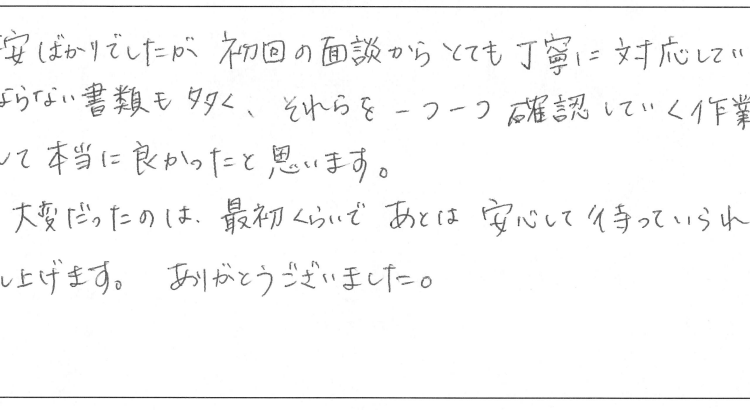 安ばかりでしたが 初回の面談からとても丁寧に対応してい
ならない書類も多く、それらを一つ一つ確認していく作業
して本当に良かったと思います。
大変だったのは、最初くらいで あとは 安心して待っていられ
し上げます。 ありがとうございました。